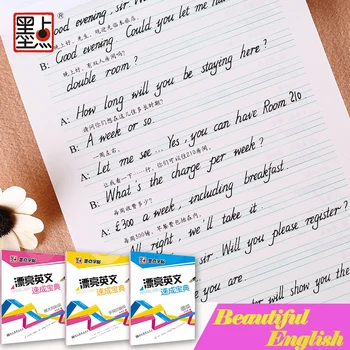 墨点
®
Good evening, sir. W
晚上好，先生，欢迎光临本酒店。
B: Good evening. Could you let me ha
晚上好，有双人房间吗？
double room?
A: How long will you be staying here?
请问你们想在这儿住多长时间？
B: A week or so.
一周左右。
A: Let me see... Yes, you can have Room 210
让我看一下……行，你们可以住210房间。
B: What's the charge per week?
每周收费多少？
A: £300 a week, including breakfast.
每周300镑，早餐费也包括在内。
All right, we'll take it.
sir. Will you please register?
should
墨点字帖
漂亮英文
速成宝典
墨点字帖
漂亮英文
速成宝典
墨点字帖
漂亮英文
速成宝典
Beautiful
English